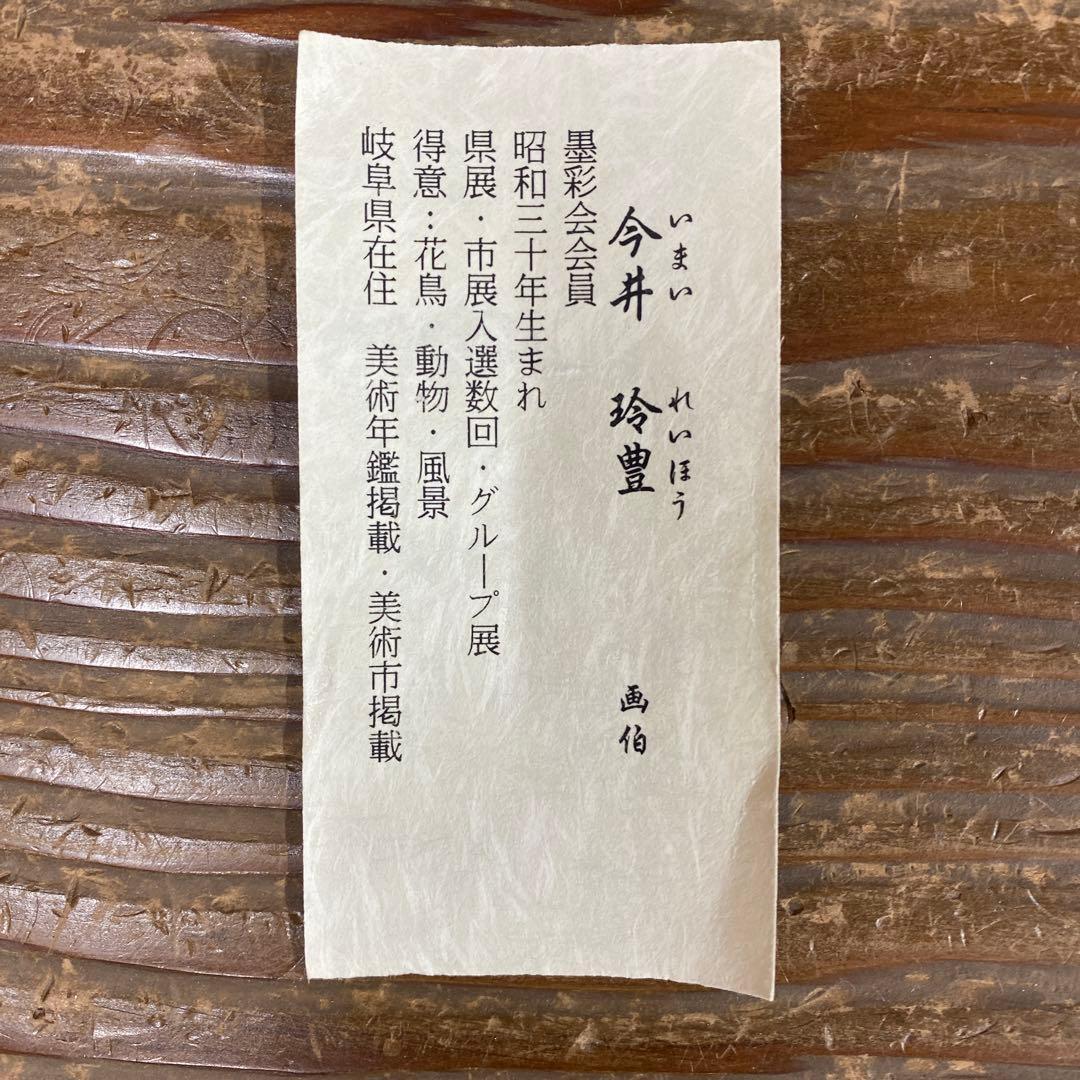 いまい れいほう
今井 玲豊 画伯
墨彩会会員
昭和三十年生まれ
県展・市展入選数回・グループ展
得意：花鳥・動物・風景
岐阜県在住 美術年鑑掲載・美術市掲載